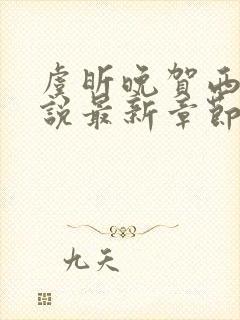 虞昕晚贺西
说最新章节
九天